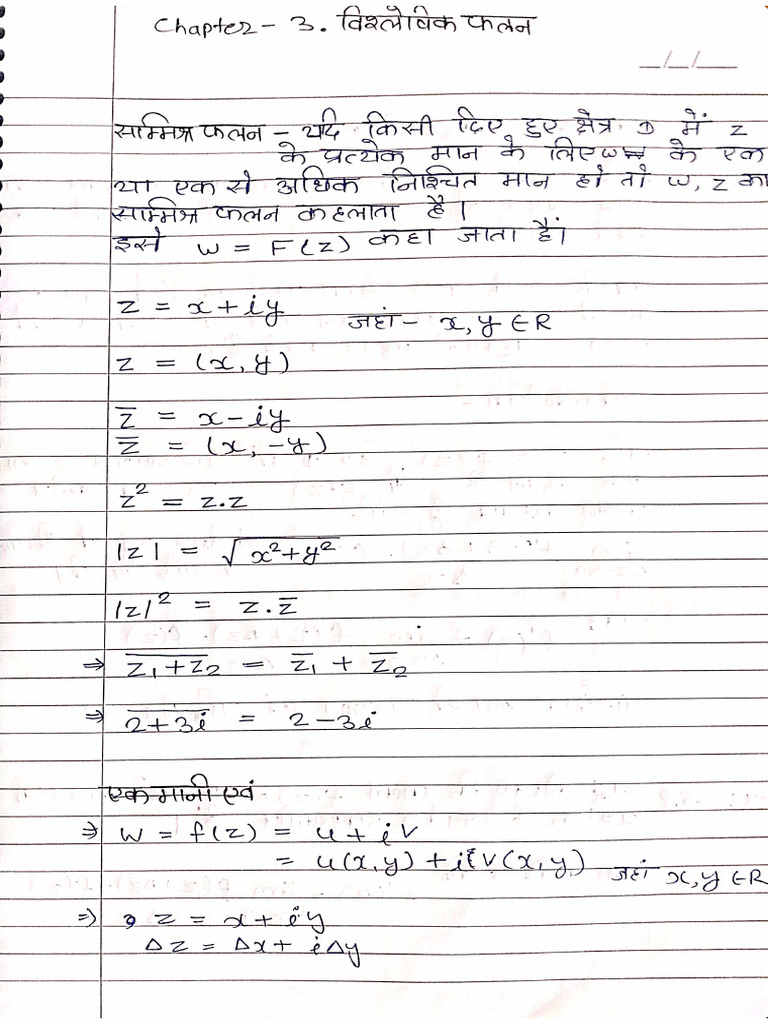 Chapter - 3. विश्लेषिक फलन
_/_/_
सम्मिश्र फलन - यदि किसी दिए हुए क्षेत्र D में z
के प्रत्येक मान के लिए w के एक
या एक से अधिक निश्चित मान हो तो w, z का
सम्मिश्र फलन कहलाता है।
इसे w = F(z) कहा जाता हैं।
z = x + iy जहां - x, y ∈ R
z = (x, y)
z̅ = x - iy
z̅ = (x, -y)
z² = z.z
|z| = √x²+y²
|z|² = z.z̅
⇒ \overline{z₁+z₂} = z̅₁ + z̅₂
⇒ \overline{2+3i} = 2-3i
एक मानी एवं
⇒ w = f(z) = u + iv
= u(x,y) + i v(x,y) जहां x,y ∈ R
⇒ z = x + iy
Δz = Δx + iΔy